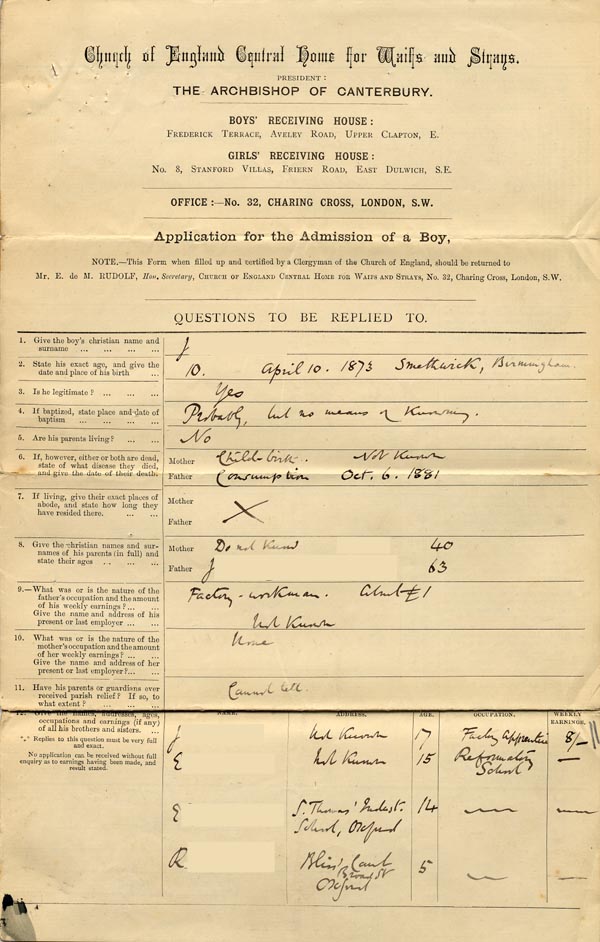 Church of England Central Home for Waifs and Strays.
PRESIDENT:
THE ARCHBISHOP OF CANTERBURY.
BOYS' RECEIVING HOUSE:
FREDERICK TERRACE, AVELEY ROAD, UPPER CLAPTON, E.
GIRLS' RECEIVING HOUSE:
No. 8, STANFORD VILLAS, FRIERN ROAD, EAST DULWICH, S.E.
OFFICE:—No. 32, CHARING CROSS, LONDON, S.W.
Application for the Admission of a Boy,
NOTE.—This Form when filled up and certified by a Clergyman of the Church of England, should be returned to
Mr. E. de M. RUDOLF, Hon. Secretary, CHURCH OF ENGLAND CENTRAL HOME FOR WAIFS AND STRAYS, No. 32, Charing Cross, London, S.W.
QUESTIONS TO BE REPLIED TO.
1. Give the boy's christian name and
surname ... ... ... ...
J
2. State his exact age, and give the
date and place of his birth ...
10. April 10. 1873 Smethwick, Birmingham.
3. Is he legitimate? ... ... ...
Yes
4. If baptized, state place and date of
baptism ... ... ... ...
Probably, but no means of Knowing.
5. Are his parents living? ... ...
No
6. If, however, either or both are dead,
state of what disease they died,
and give the date of their death.
Mother Childebirth. Not Known
Father Consumption Oct. 6. 1881
7. If living, give their exact places of
abode, and state how long they
have resided there. ... ...
Mother
Father
X
8. Give the christian names and sur-
names of his parents (in full) and
state their ages ... ... ...
Mother Do not Know 40
Father J 63
9.—What was or is the nature of the
father's occupation and the amount
of his weekly earnings? ... ...
Give the name and address of his
present or last employer ... ...
Factory-workman. About £1
Not Known
10. What was or is the nature of the
mother's occupation and the amount
of her weekly earnings? ... ...
Give the name and address of her
present or last employer?... ...
None
11. Have his parents or guardians ever
received parish relief? If so, to
what extent? ... ... ...
Cannot tell.
12. Give the names, addresses, ages,
occupations and earnings (if any)
of all his brothers and sisters. ...
*** Replies to this question must be very full
and exact.
No application can be received without full
enquiry as to earnings having been made, and
result stated.
NAME. ADDRESS. AGE. OCCUPATION. WEEKLY
EARNINGS.
J Not Known 17 Factory Apprentice 8/-
E Not Known 15 Reformatory
School —
E S. Thomas' Indust. 14 — —
School, Oxford
R Bliss' Court 5 — —
Broad St
Oxford